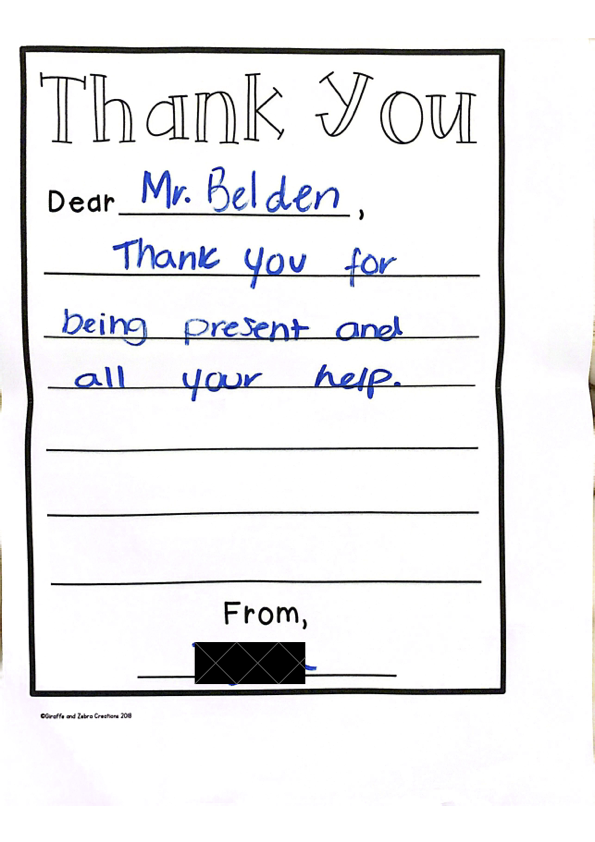 Thank You
Dear Mr. Belden,
Thank you for
being present and
all your help.
From,
©Giraffe and Zebra Creations 2018